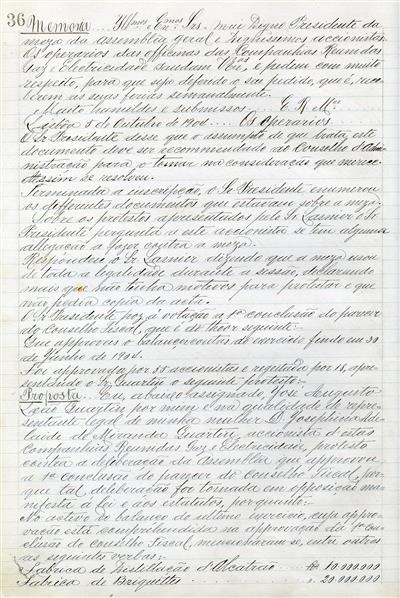 36 Memoria... Illmos e Exmos Srs. mui Digno Presidente da
meza da assembléa geral e Dignissimos accionistas
Os operarios das officinas das Companhias Reunidas
Gaz e Electricidade saudam V. Exas, e pedem com muito
respeito, para que seja deferido o seu pedido, que é, rece-
berem as suas ferias semanalmente.
Muito humildes e submissos. E. R. Mce
Lisboa 5 de Outubro de 1904. Os Operarios.
O Sr. Presidente disse que o assumpto de que trata, este
documento deve ser recommendado ao Conselho d'Admi-
nistração para o tomar na consideração que merece.
Assim se resolveu.
Terminada a inscripção, o Sr. Presidente enumerou
os differentes documentos que estavam sobre a meza.
Sobre os protestos apresentados pelo Sr. Lasnier o Sr.
Presidente pergunta a este accionista se tem alguma
allegação a fazer contra a meza.
Respondeu o Sr. Lasnier dizendo que a meza usou
de toda a legalidade durante a sessão, declarando
mais que não tinha motivos para protestar e que
não pedia copia da acta.
O Sr. Presidente poz á votação a 1ª conclusão do parecer
do Conselho Fiscal, que é do theor seguinte:
Que approveis o balanço e contas do exercicio findo em 30
de Junho de 1904.
Foi approvada por 55 accionistas e regeitada por 18, apre-
sentando o Sr. Quartin o seguinte protesto:
Proposta... Eu, abaixo assignado, José Augusto
Quartin por mim e na qualidade de repre-
sentante legal de minha mulher D. Josephina Ade-
laide de Miranda Quartin, accionista d'estas
Companhias Reunidas Gaz e Electricidade, protesto
contra a deliberação da Assembléa que approvou
a 1ª conclusão do parecer do Conselho Fiscal, por-
que tal deliberação foi tomada em opposição ma-
nifesta á lei e aos estatutos, porquanto:
No activo do balanço do ultimo exercicio, cuja appro-
vação está comprehendida na approvação da 1ª Con-
clusão do conselho Fiscal, mencionaram-se, entre outras
as seguintes verbas:
Fabrica de distillação d'Alcatrão... Rs 10.000.000
Fabrica de Briquettes... " 20.000.000